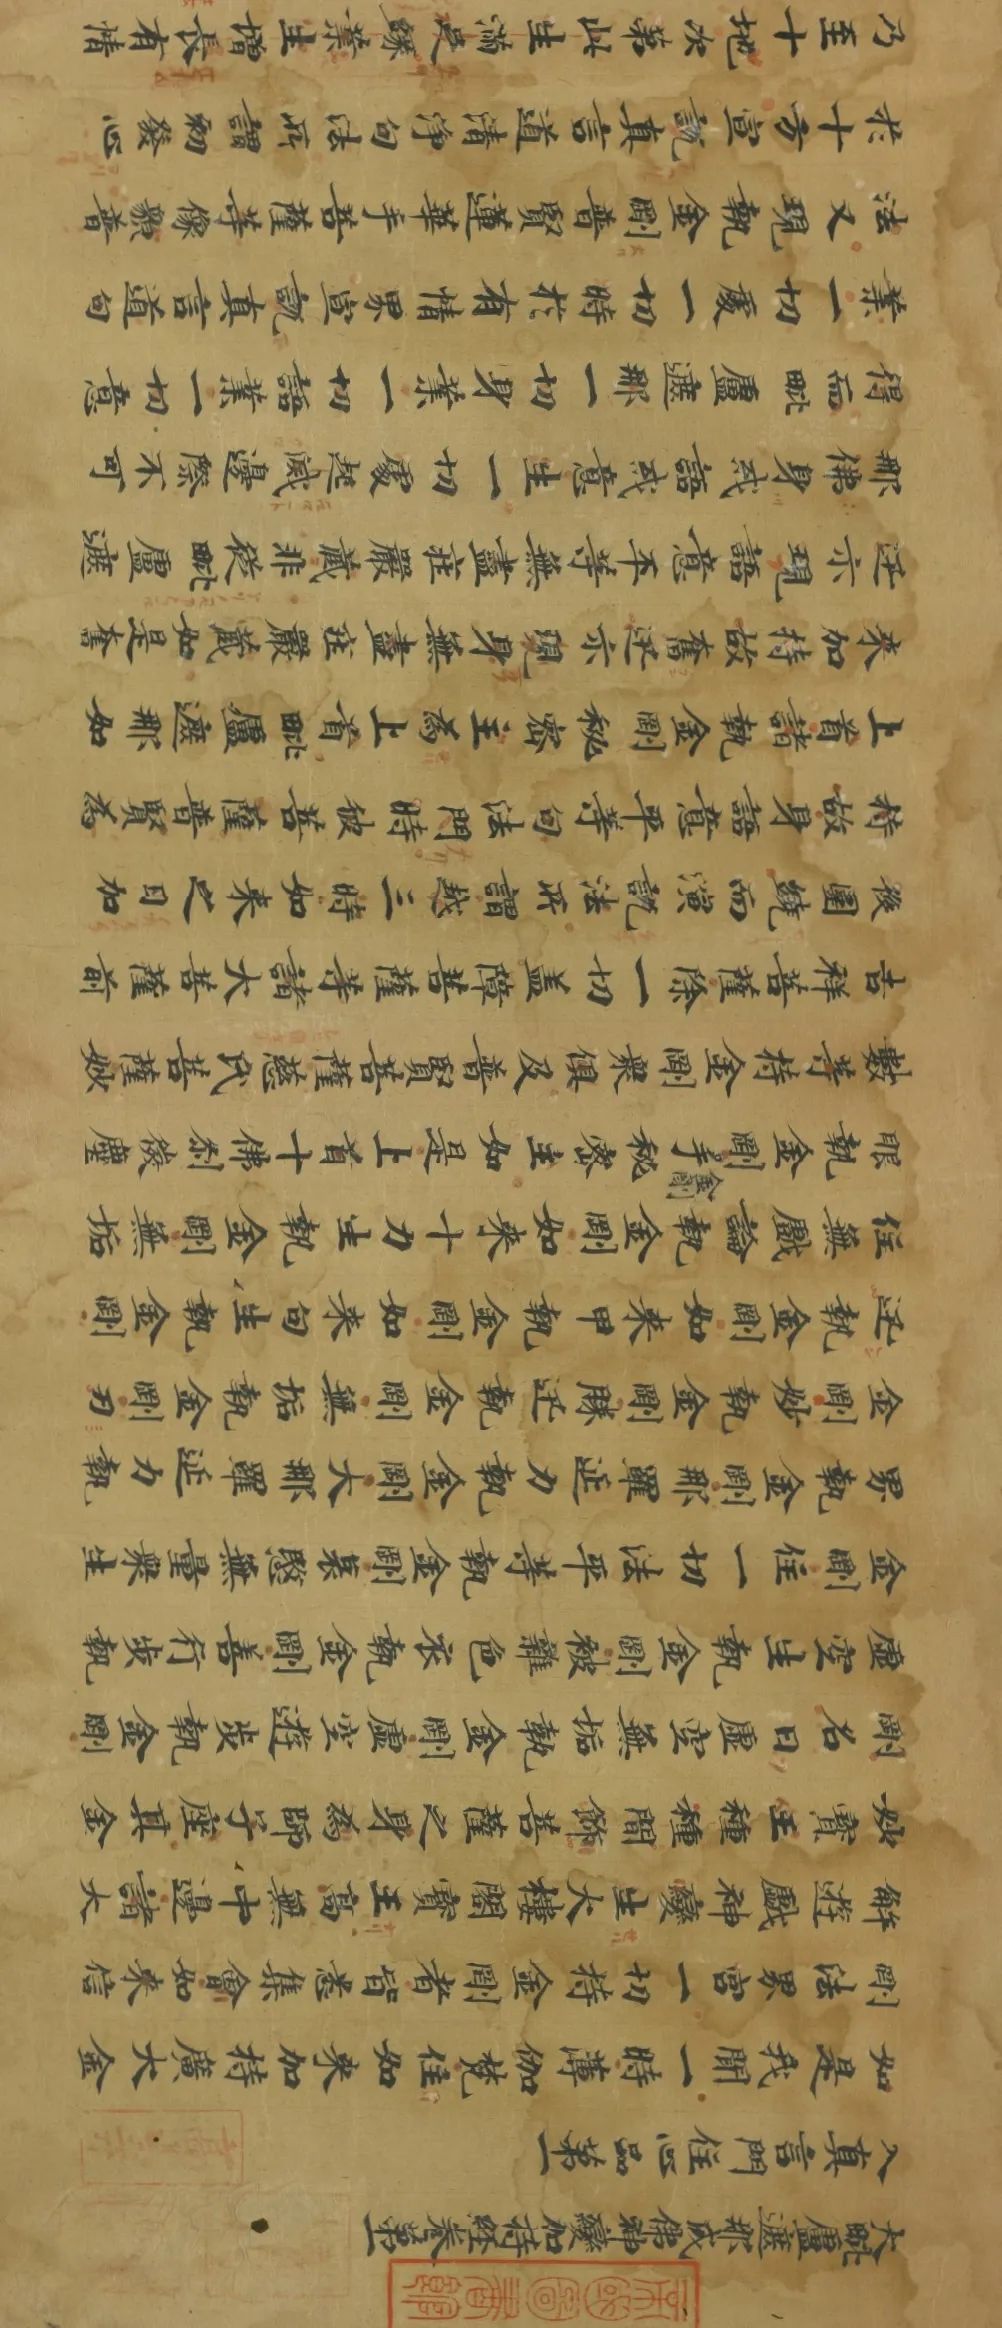 大毗盧遮那成佛神變加持經卷第一
入真言門住心品第一
如是我聞一時薄伽梵住如来加持廣大金
剛法界宮一切持金剛者皆悉集會如来信
解遊戲神變生大樓閣寶王高無中邊諸大
妙寶王種種間飾菩薩之身為師子座其金
剛名曰虛空無垢執金剛虛空遊步執金剛
虛空生執金剛被雜色衣執金剛善行步執
金剛住一切法平等執金剛哀愍無量衆生
界執金剛那羅延力執金剛大那羅延力執
金剛妙執金剛勝迅執金剛無垢執金剛刃
迅執金剛如来甲執金剛如来句生執金剛
住無戲論執金剛如来十力生執金剛無垢
眼執金剛金剛手秘密主如是上首十佛剎微塵
數等持金剛衆俱及普賢菩薩慈氏菩薩妙
吉祥菩薩除一切盖障菩薩等諸大菩薩前
後圍繞而演說法所謂越三時如来之日加
持故身語意平等句法門時彼菩薩普賢為
上首諸執金剛秘密主為上首毗盧遮那如
来加持故奮迅示現身無盡莊嚴藏如是奮
迅示現語意平等無盡莊嚴藏非從毗盧遮
那佛身或語或意生一切處起滅邊際不可
得而毗盧遮那一切身業一切語業一切意
業一切處一切時於有情界宣說真言道句
法又現執金剛普賢蓮華手菩薩等像貌普
於十方宣說真言道清淨句法所謂初發心
乃至十地次第此生滿足緣業生增長有情